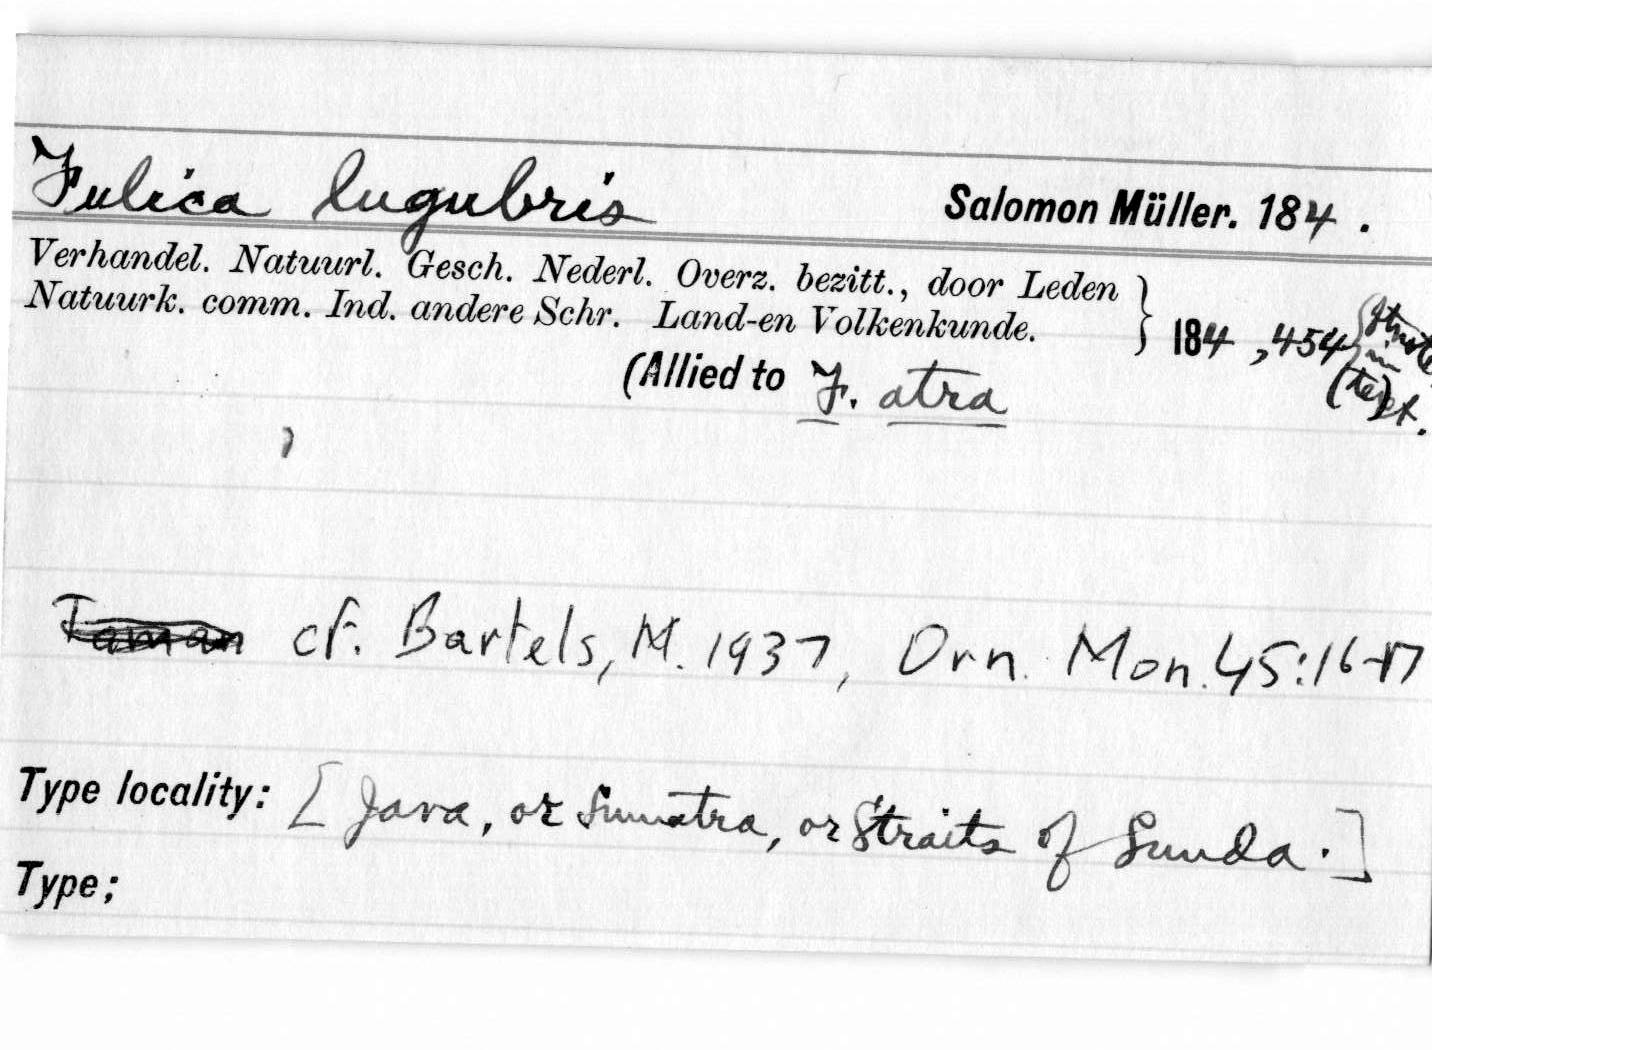 Fulica lugubris Salomon Müller. 184 .
Verhandel. Natuurl. Gesch. Nederl. Overz. bezitt., door Leden
Natuurk. comm. Ind. andere Schr. Land-en Volkenkunde. } 184 , 454
in
(Allied to F. atra
(text.
cf. Bartels, M. 1937, Orn. Mon. 45:16-17
Type locality: [Java, or Sumatra, or Straits of Sunda.]
Type;